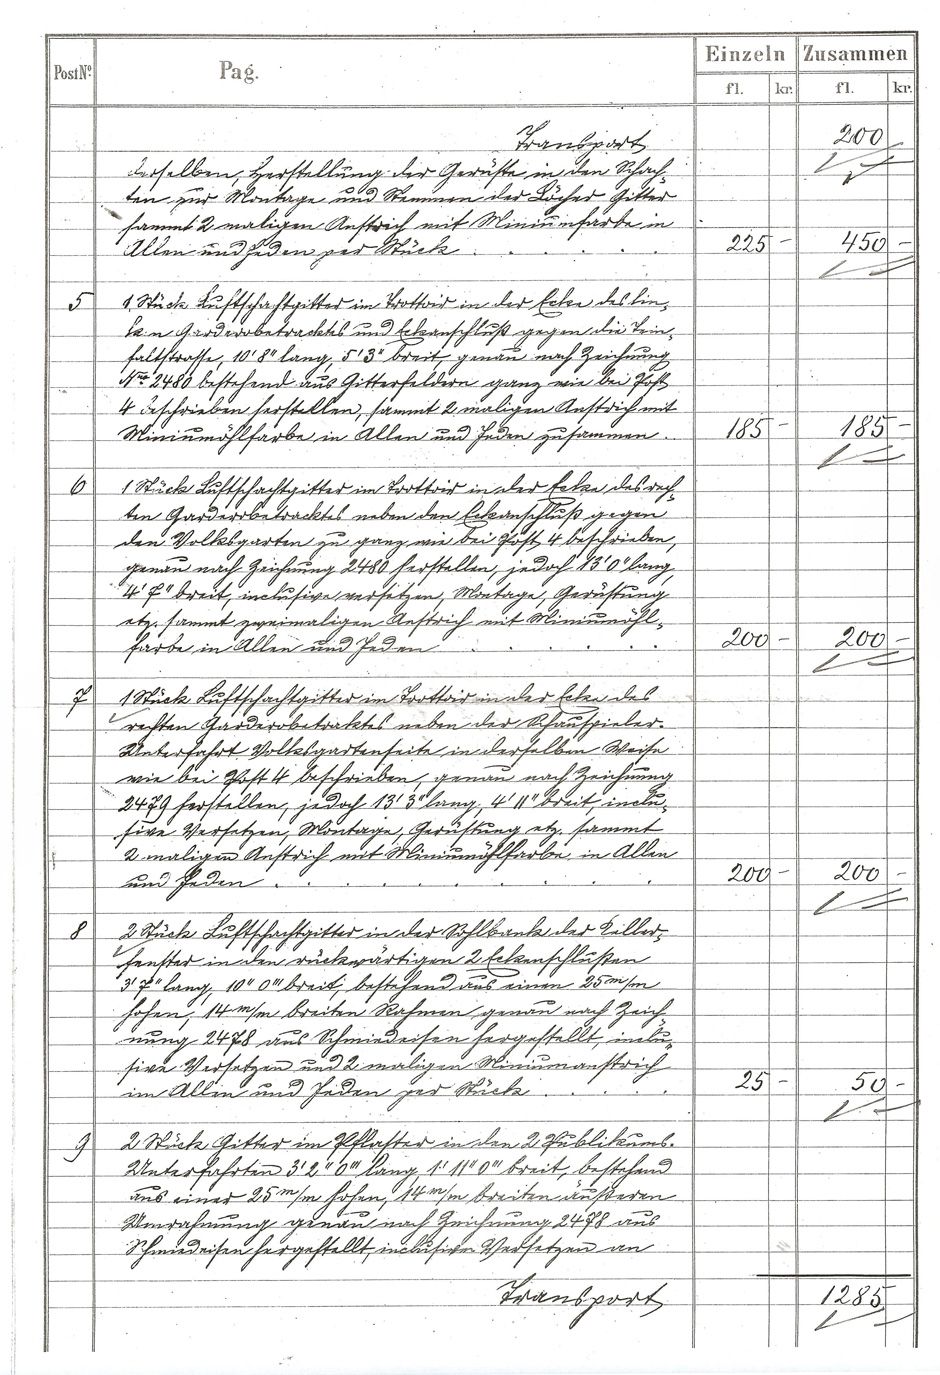 Post No. Pag. Einzeln Zusammen
fl. kr. fl. kr.
Transport 200
derselben, Herstellung der Gerüste in den Schäch-
ten zur Montage und Stemmen der Löcher Gitter
sammt 2 maligen Anstrich mit Miniumfarbe in
Allen und Jeden per Stück . . . . . 225 - 450 -
5 1 Stück Luftschachtgitter im Trottoir in der Ecke des lin-
ken Garderobetracktes und Eckanschluß gegen die Tein-
faltstrasse, 10' 8" lang, 5' 3" breit, genau nach Zeichnung
Nro 2480 bestehend aus Gitterfeldern ganz wie bei Post
4 beschrieben herstellen, sammt 2 maligen Anstrich mit
Miniumöhlfarbe in Allen und Jeden zusammen . . 185 - 185 -
6 1 Stück Luftschachtgitter im Trottoir in der Ecke des rech-
ten Garderobetracktes neben den Eckanschluß gegen
den Volksgarten zu ganz wie bei Post 4 beschrieben,
genau nach Zeichnung 2480 herstellen, jedoch 13' 0" lang,
4' 7" breit, inclusive versetzen, Montage, Gerüstung
etz. sammt zweimaligen Anstrich mit Miniumöhl-
farbe in Allen und Jeden . . . . . 200 - 200 -
7 1 Stück Luftschachtgitter im Trottoir in der Ecke des
rechten Garderobetraktes neben der Schauspieler-
Unterfahrt Volksgartenseite in derselben Weise
wie bei Post 4 beschrieben, genau nach Zeichnung
2479 herstellen, jedoch 13' 3" lang, 4' 11" breit, inclu-
sive Versetzen, Montage, Gerüstung etz. sammt
2 maligen Anstrich mit Miniumöhlfarbe in Allen
und Jeden . . . . . . . . . 200 - 200 -
8 2 Stück Luftschachtgitter in der Sohlbank der Keller-
fenster in den rückwärtigen 2 Eckenschlußen
3' 7" lang, 10" 0"' breit, bestehend aus einen 25 m/m
hohen, 14 m/m breiten Rahmen genau nach Zeich-
nung 2478 aus Schmiedeisen hergestellt, inclu-
sive Versetzen und 2 maligen Miniumanstrich
im Allen und Jeden per Stück . . . . 25 - 50 -
9 2 Stück Gitter im Pflaster in den 2 Publikums-
Unterfahrten 3' 2" 0"' lang, 1' 11" 0"' breit, bestehend
aus einer 25 m/m hohen, 14 m/m breiten äußeren
Umrahmung genau nach Zeichnung 2478 aus
Schmiedeisen hergestellt, inclusive Versetzen an
Transport 1285